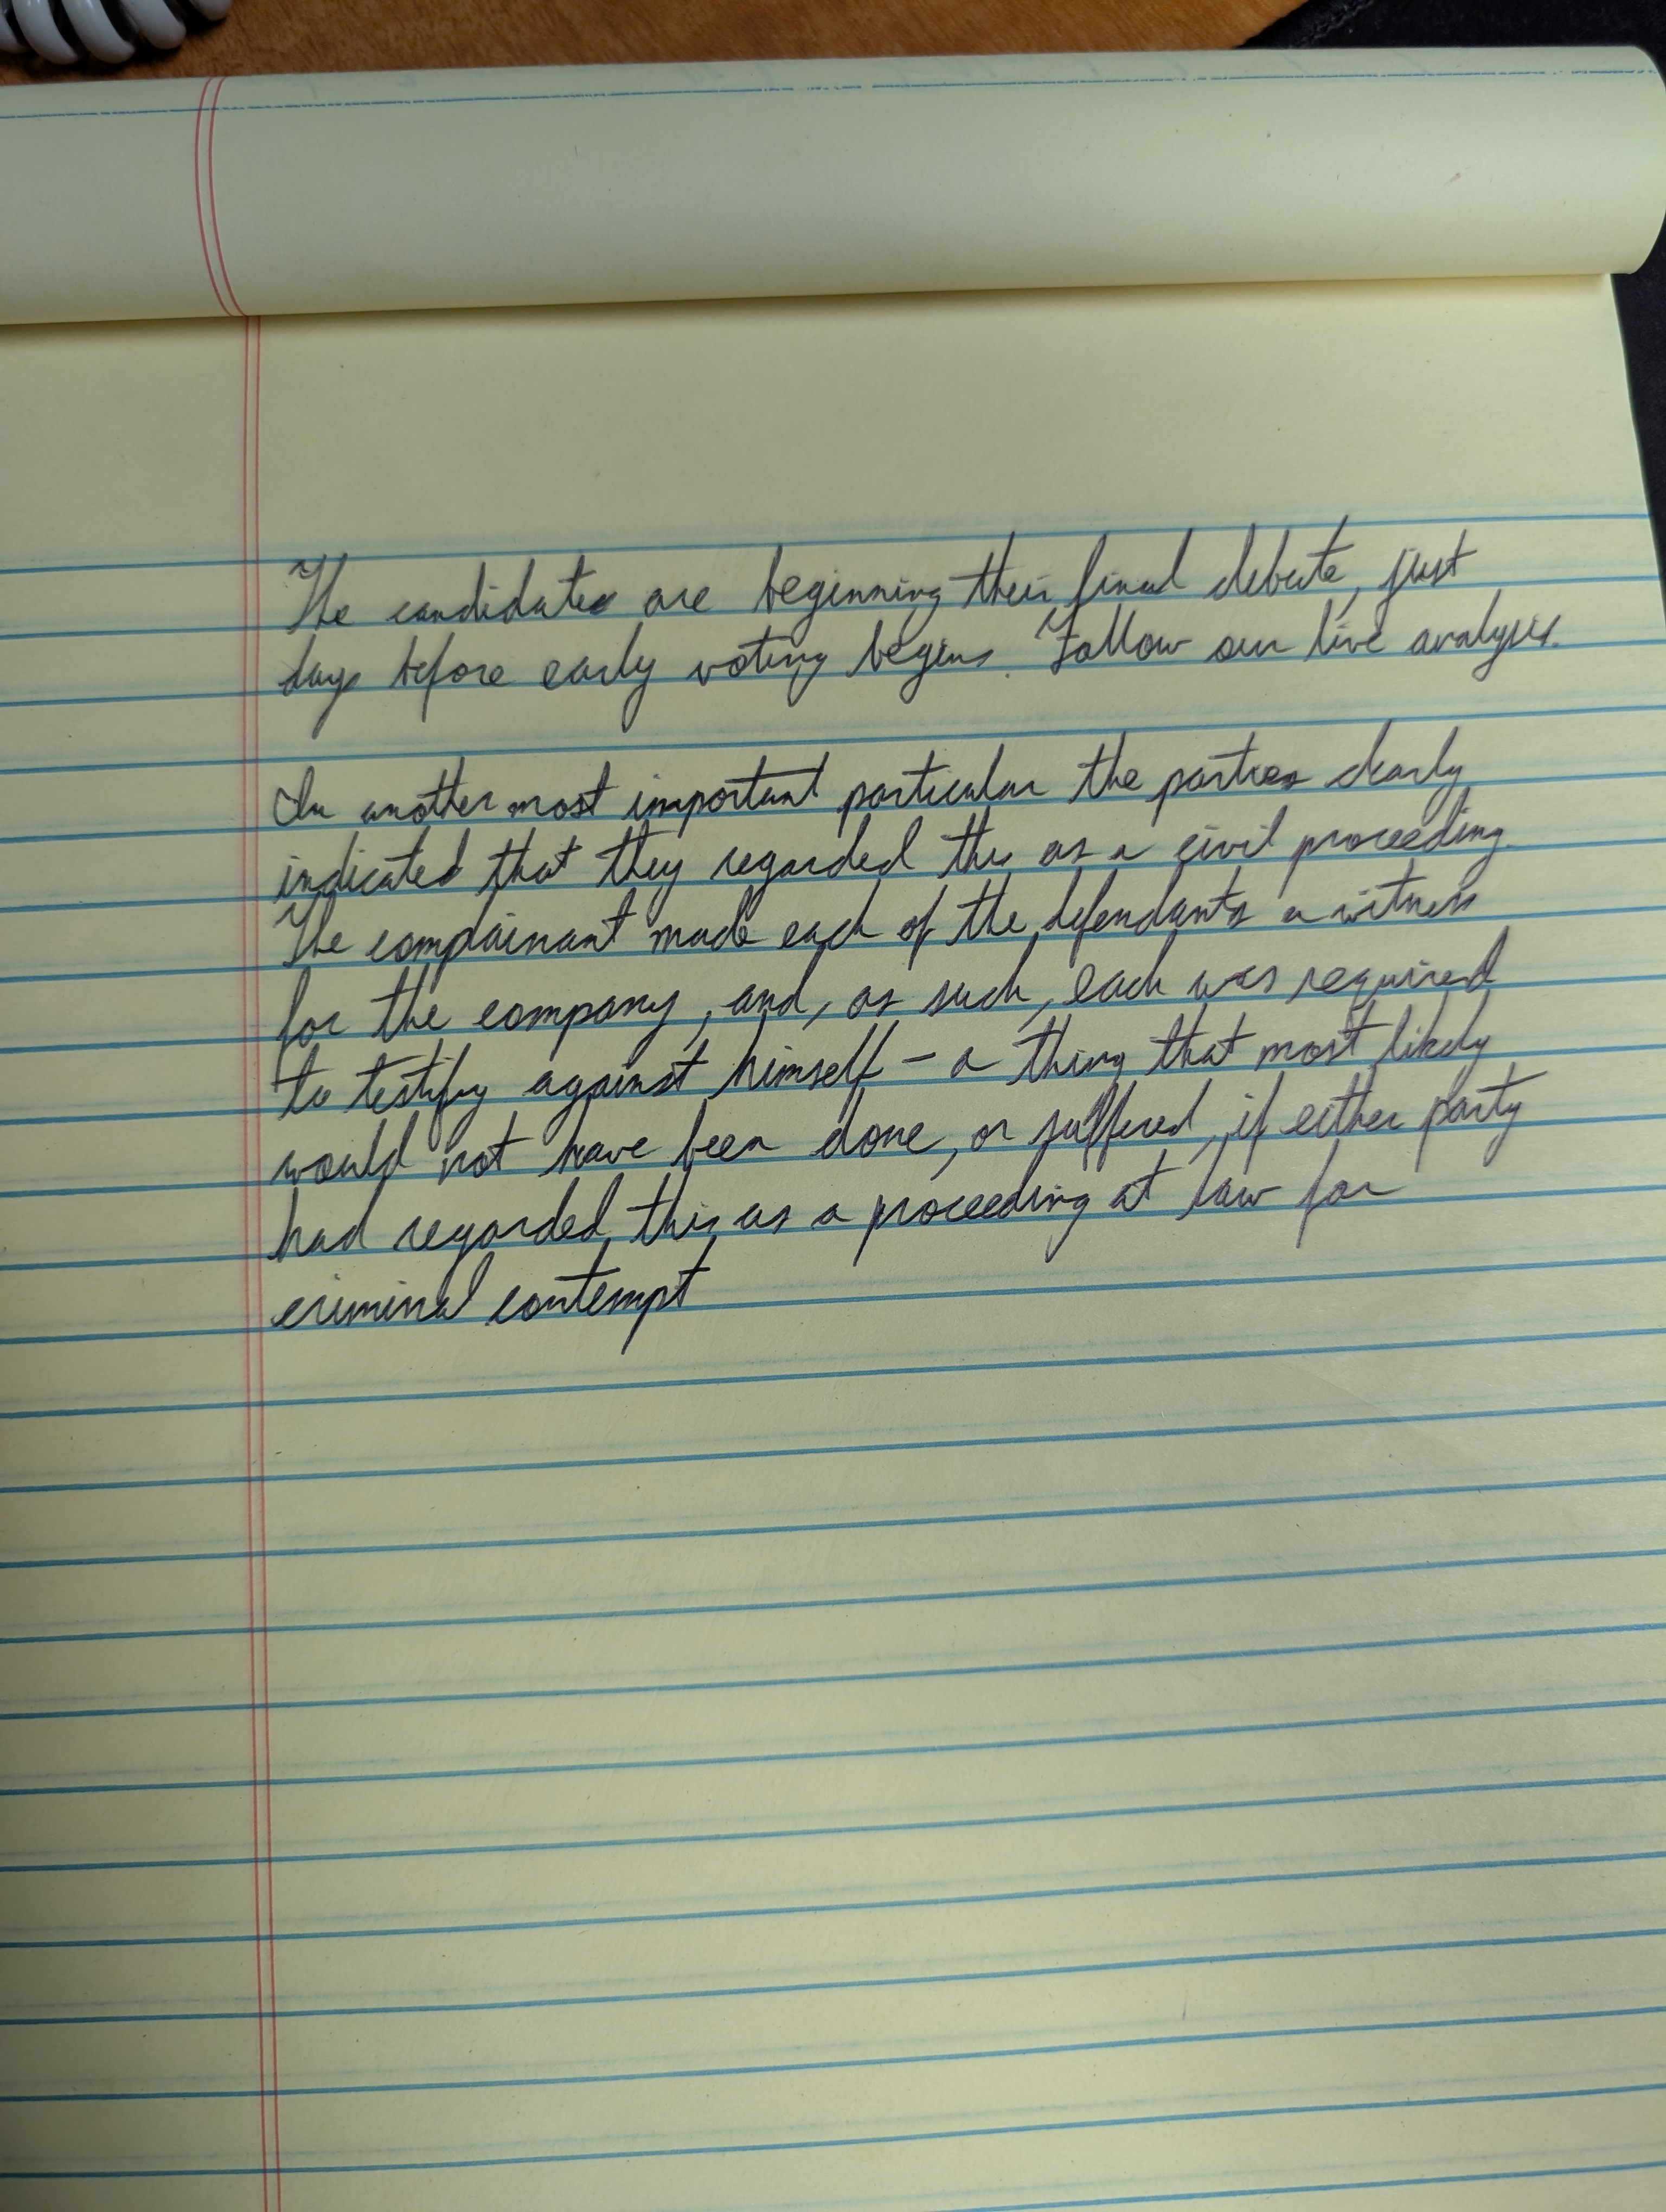 The candidates are beginning their final debate, just
days before early voting begins. Follow our live analysis.
In another most important particular the parties clearly
indicated that they regarded this as a civil proceeding.
The complainant made each of the defendants a witness
for the company, and, as such, each was required
to testify against himself - a thing that most likely
would not have been done, or suffered, if either party
had regarded this as a proceeding at law for
criminal contempt